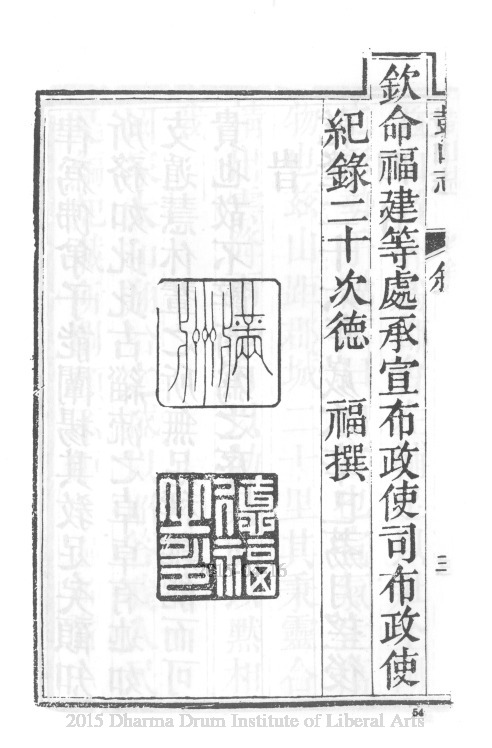 鼓山志
三
欽命福建等處承宣布政使司布政使
紀錄二十次德 福撰
滿洲
德福之印
54
2015 Dharma Drum Institute of Liberal Arts